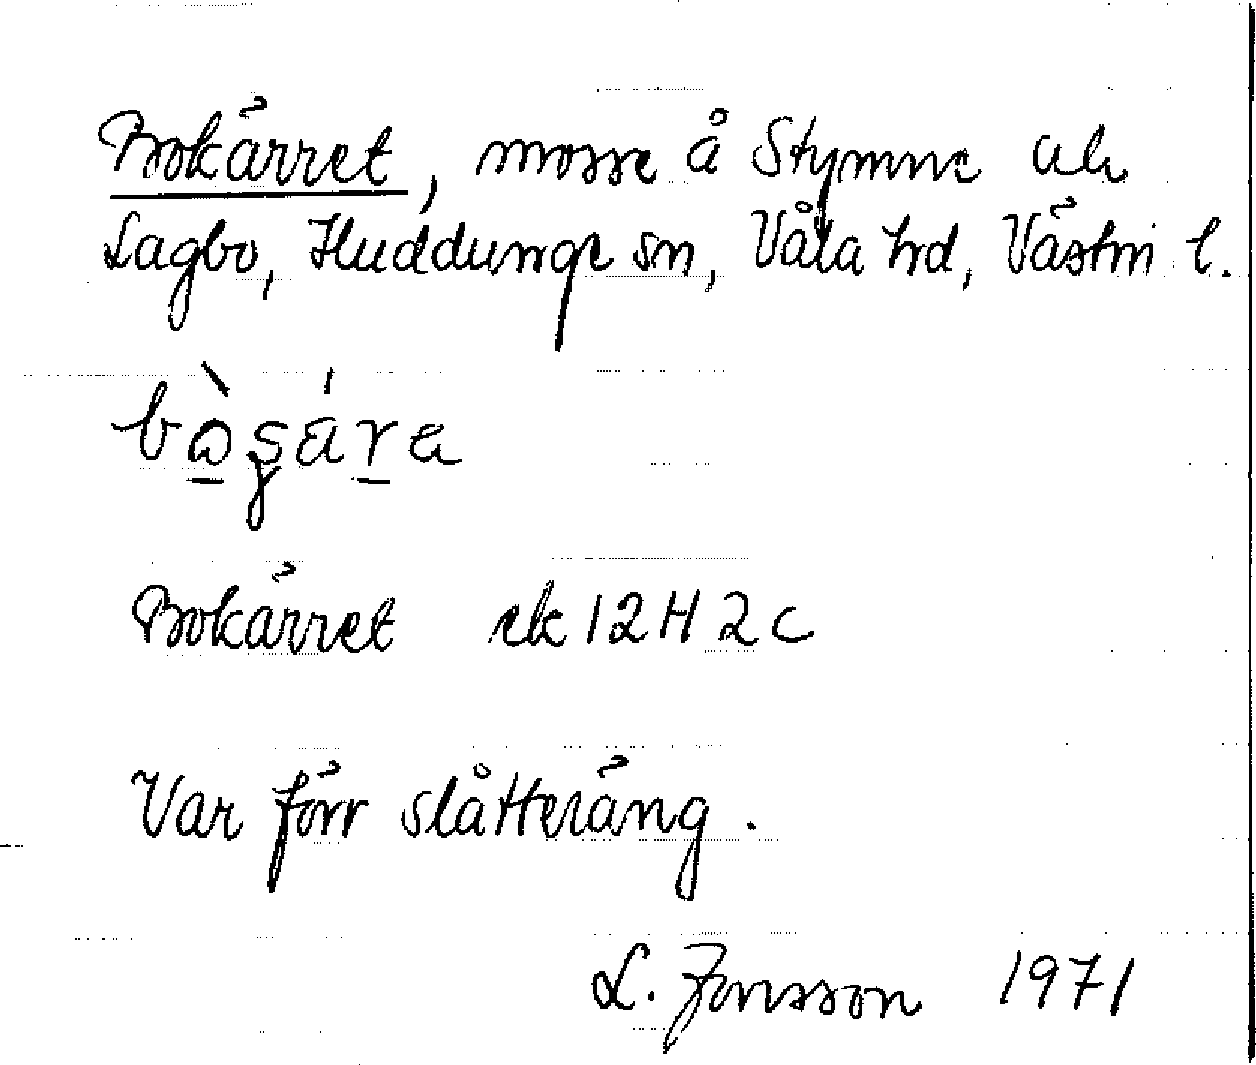 Bokärret, mosse å Stymne ch
Lagbo, Huddunge sn, Våla hd, Västm l.
Bokärret ek 12H2c
Var förr slåtteräng.
L. Jonsson 1971